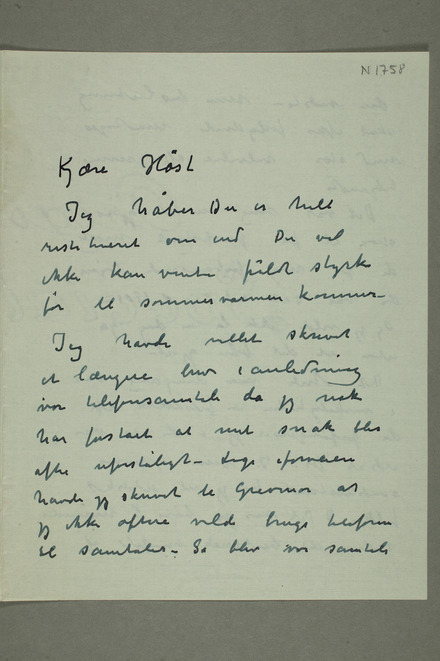 N 1758
Kjære Høst
Jeg håber Du er helt
restitueret om end Du vel
ikke kan vente fuldt styrke
før til sommervarmen kommer.
Jeg havde villet skrevet
et længere brev i anledning
vor telefonsamtale da jeg nok
har forstået at mit snak blev
ofte uforståligt -
havde jeg skrevet til at
jeg ikke oftere vilde bruge telefonen
til samtaler. Så blev vor samtale